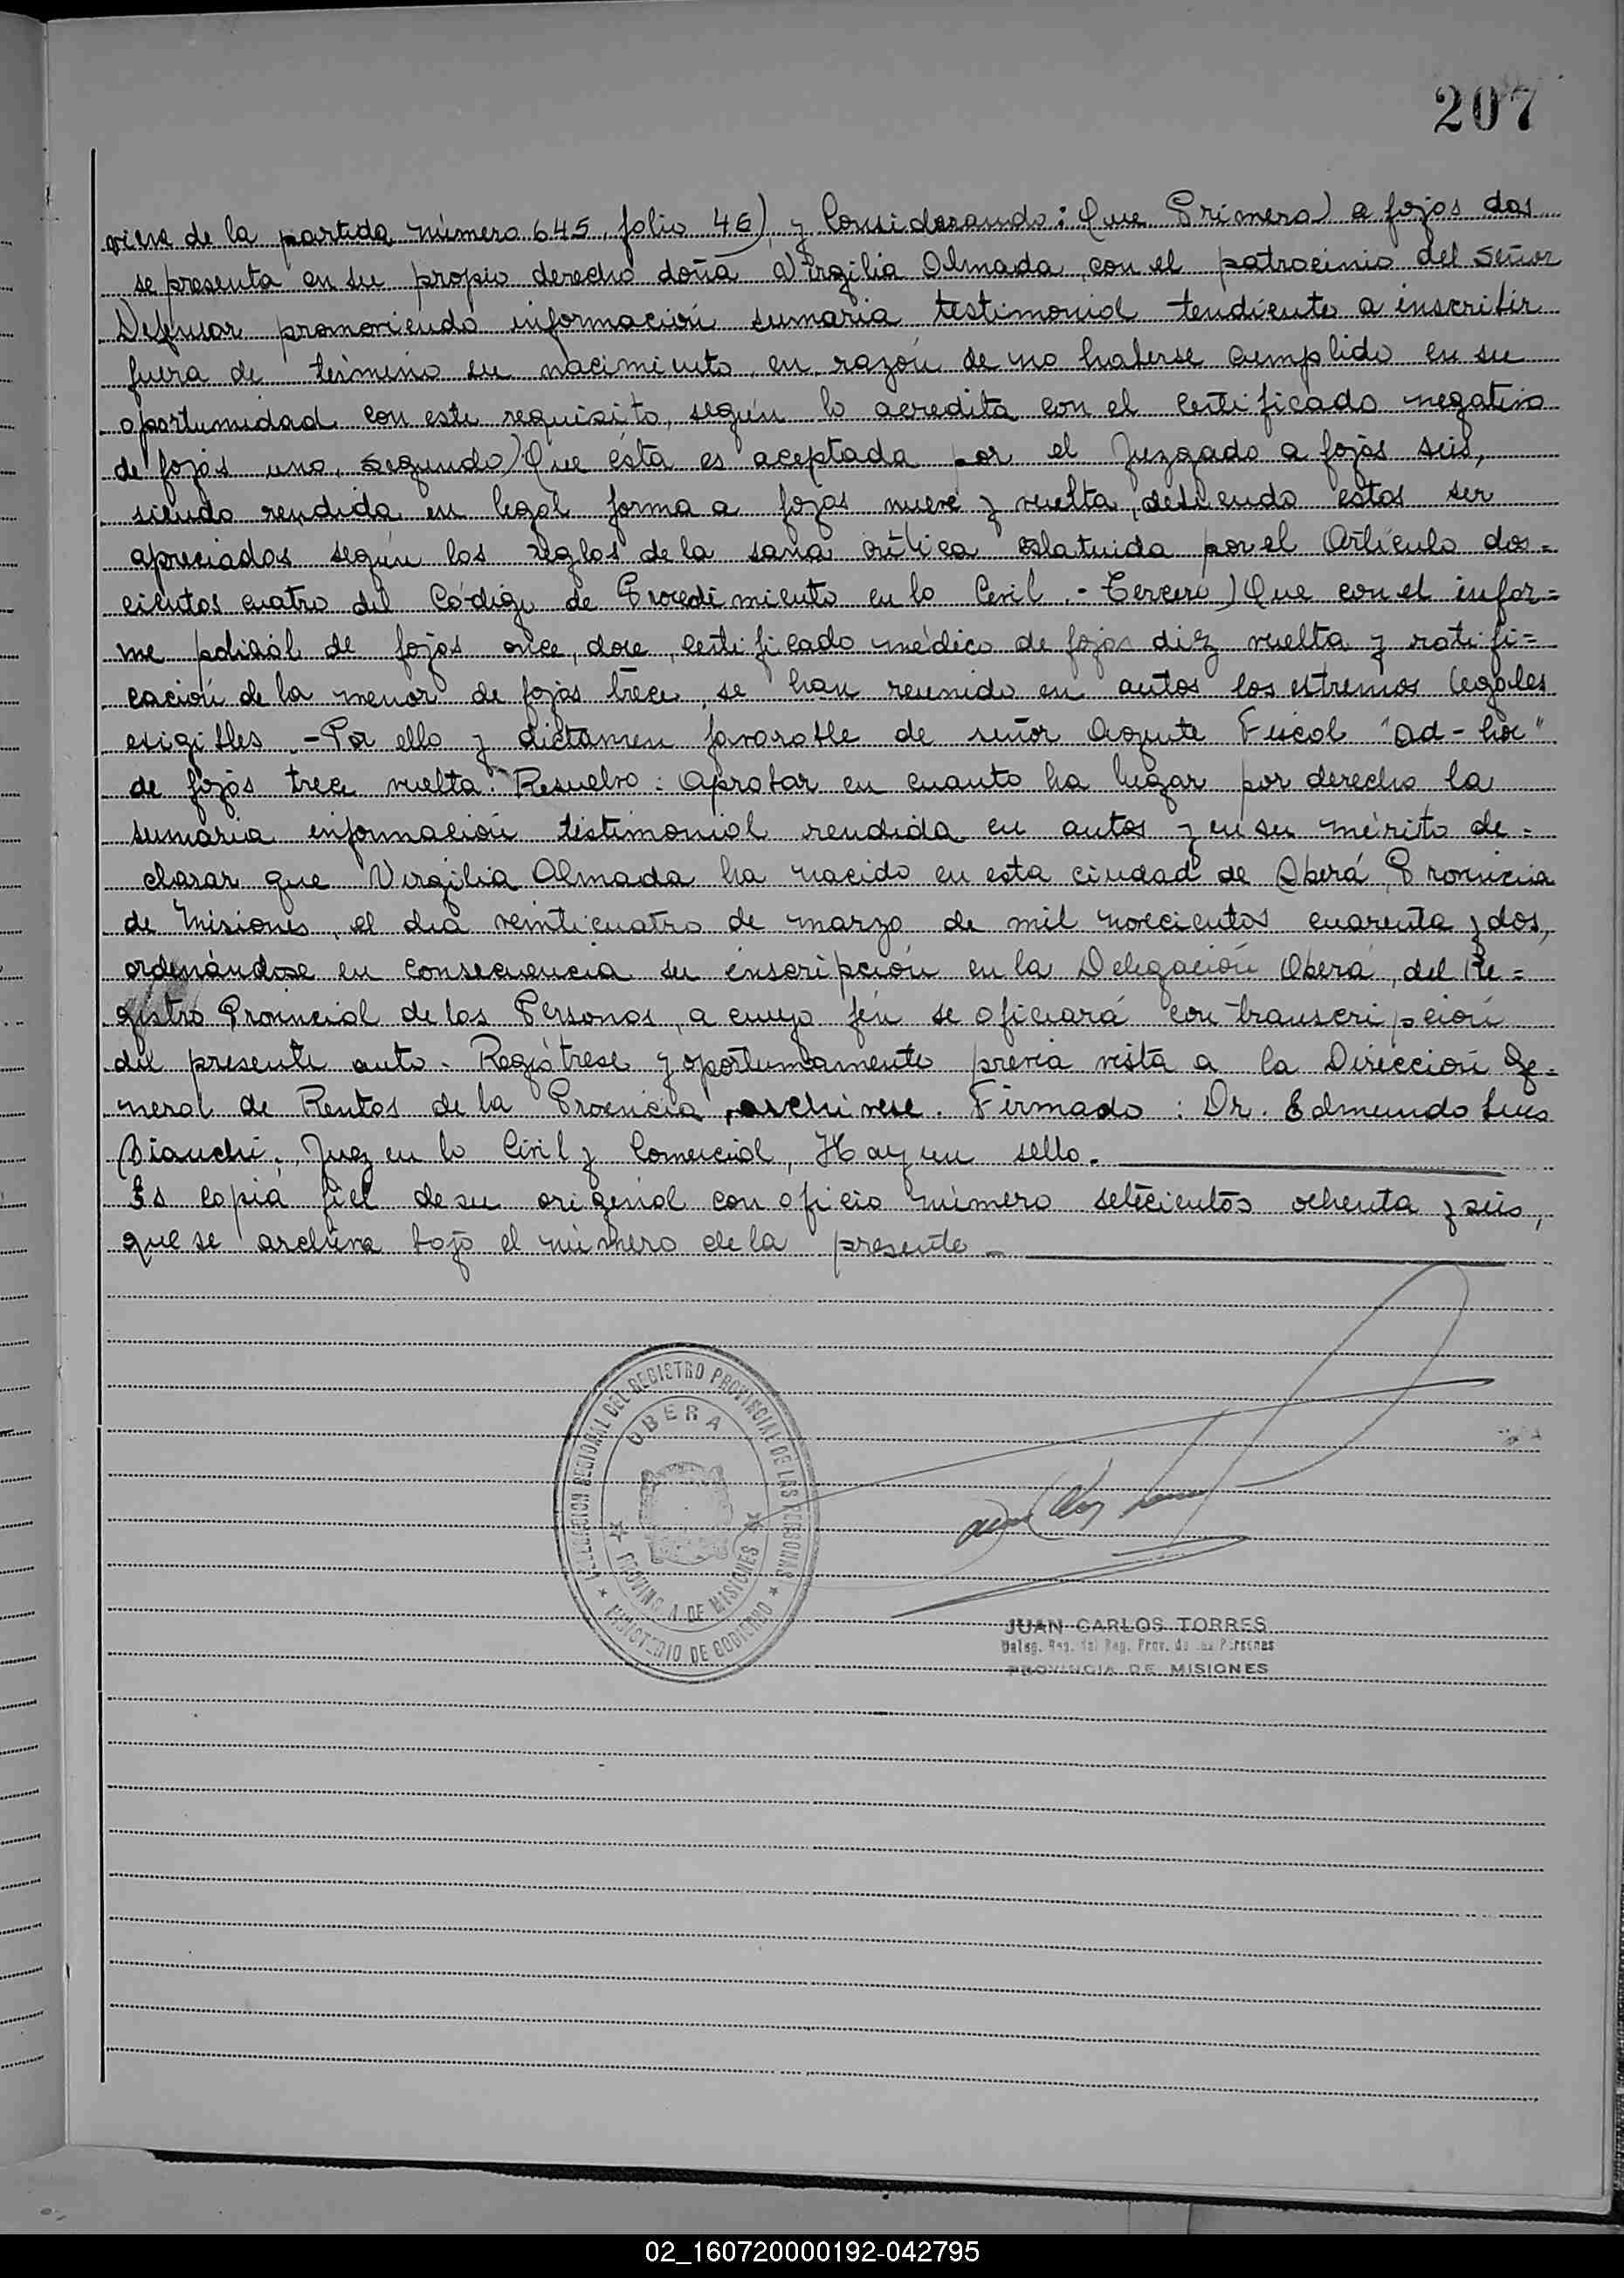 207
viene de la partida número 645, folio 46), y Considerando: Que Primero) a fojas dos
se presenta en su propio derecho doña Virgilia Almada, con el patrocinio del Señor
Defensor promoviendo información sumaria testimonial tendiente a inscribir
fuera de término su nacimiento, en razón de no haberse cumplido en su
oportunidad con este requisito, según lo acredita con el certificado negativo
de fojas uno, segundo) Que ésta es aceptada por el Juzgado a fojas seis,
siendo rendida en legal forma a fojas nueve y vuelta, debiendo estas ser
apreciadas según las reglas de la sana crítica estatuida por el Artículo dos=
cientos cuatro del Código de Procedimiento en lo Civil.- Tercero) Que con el infor=
me policial de fojas once, doce, certificado médico de fojas diez vuelta y ratifi=
cación de la menor de fojas trece, se han reunido en autos los estremos legales
exigibles.- Por ello y dictamen favorable de señor Agente Fiscal "ad-hoc"
de fojas trece vuelta. Resuelvo: Aprobar en cuanto ha lugar por derecho la
sumaria información testimonial rendida en autos y en su mérito de=
clarar que Virgilia Almada ha nacido en esta ciudad de Oberá, Provincia
de Misiones, el día veinticuatro de marzo de mil novecientos cuarenta y dos,
ordenándose en consecuencia su inscripción en la Delegación Oberá, del Re=
gistro Provincial de las Personas, a cuyo fin se oficiará con transcripción
del presente auto. Regístrese y oportunamente previa vista a la Dirección Ge=
neral de Rentas de la Provincia, archívese. Firmado: Dr. Edmundo Luis
Bianchi, Juez en lo Civil y Comercial, Hay un sello.
Es copia fiel de su original con oficio número setecientos ochenta y seis,
que se archiva bajo el número de la presente.-
DELEGACION REGIONAL DEL REGISTRO PROVINCIAL DE LAS PERSONAS
OBERA
PROVINCIA DE MISIONES
MINISTERIO DE GOBIERNO
JUAN CARLOS TORRES
Deleg. Reg. del Reg. Prov. de las Personas
PROVINCIA DE MISIONES
02_160720000192-042795